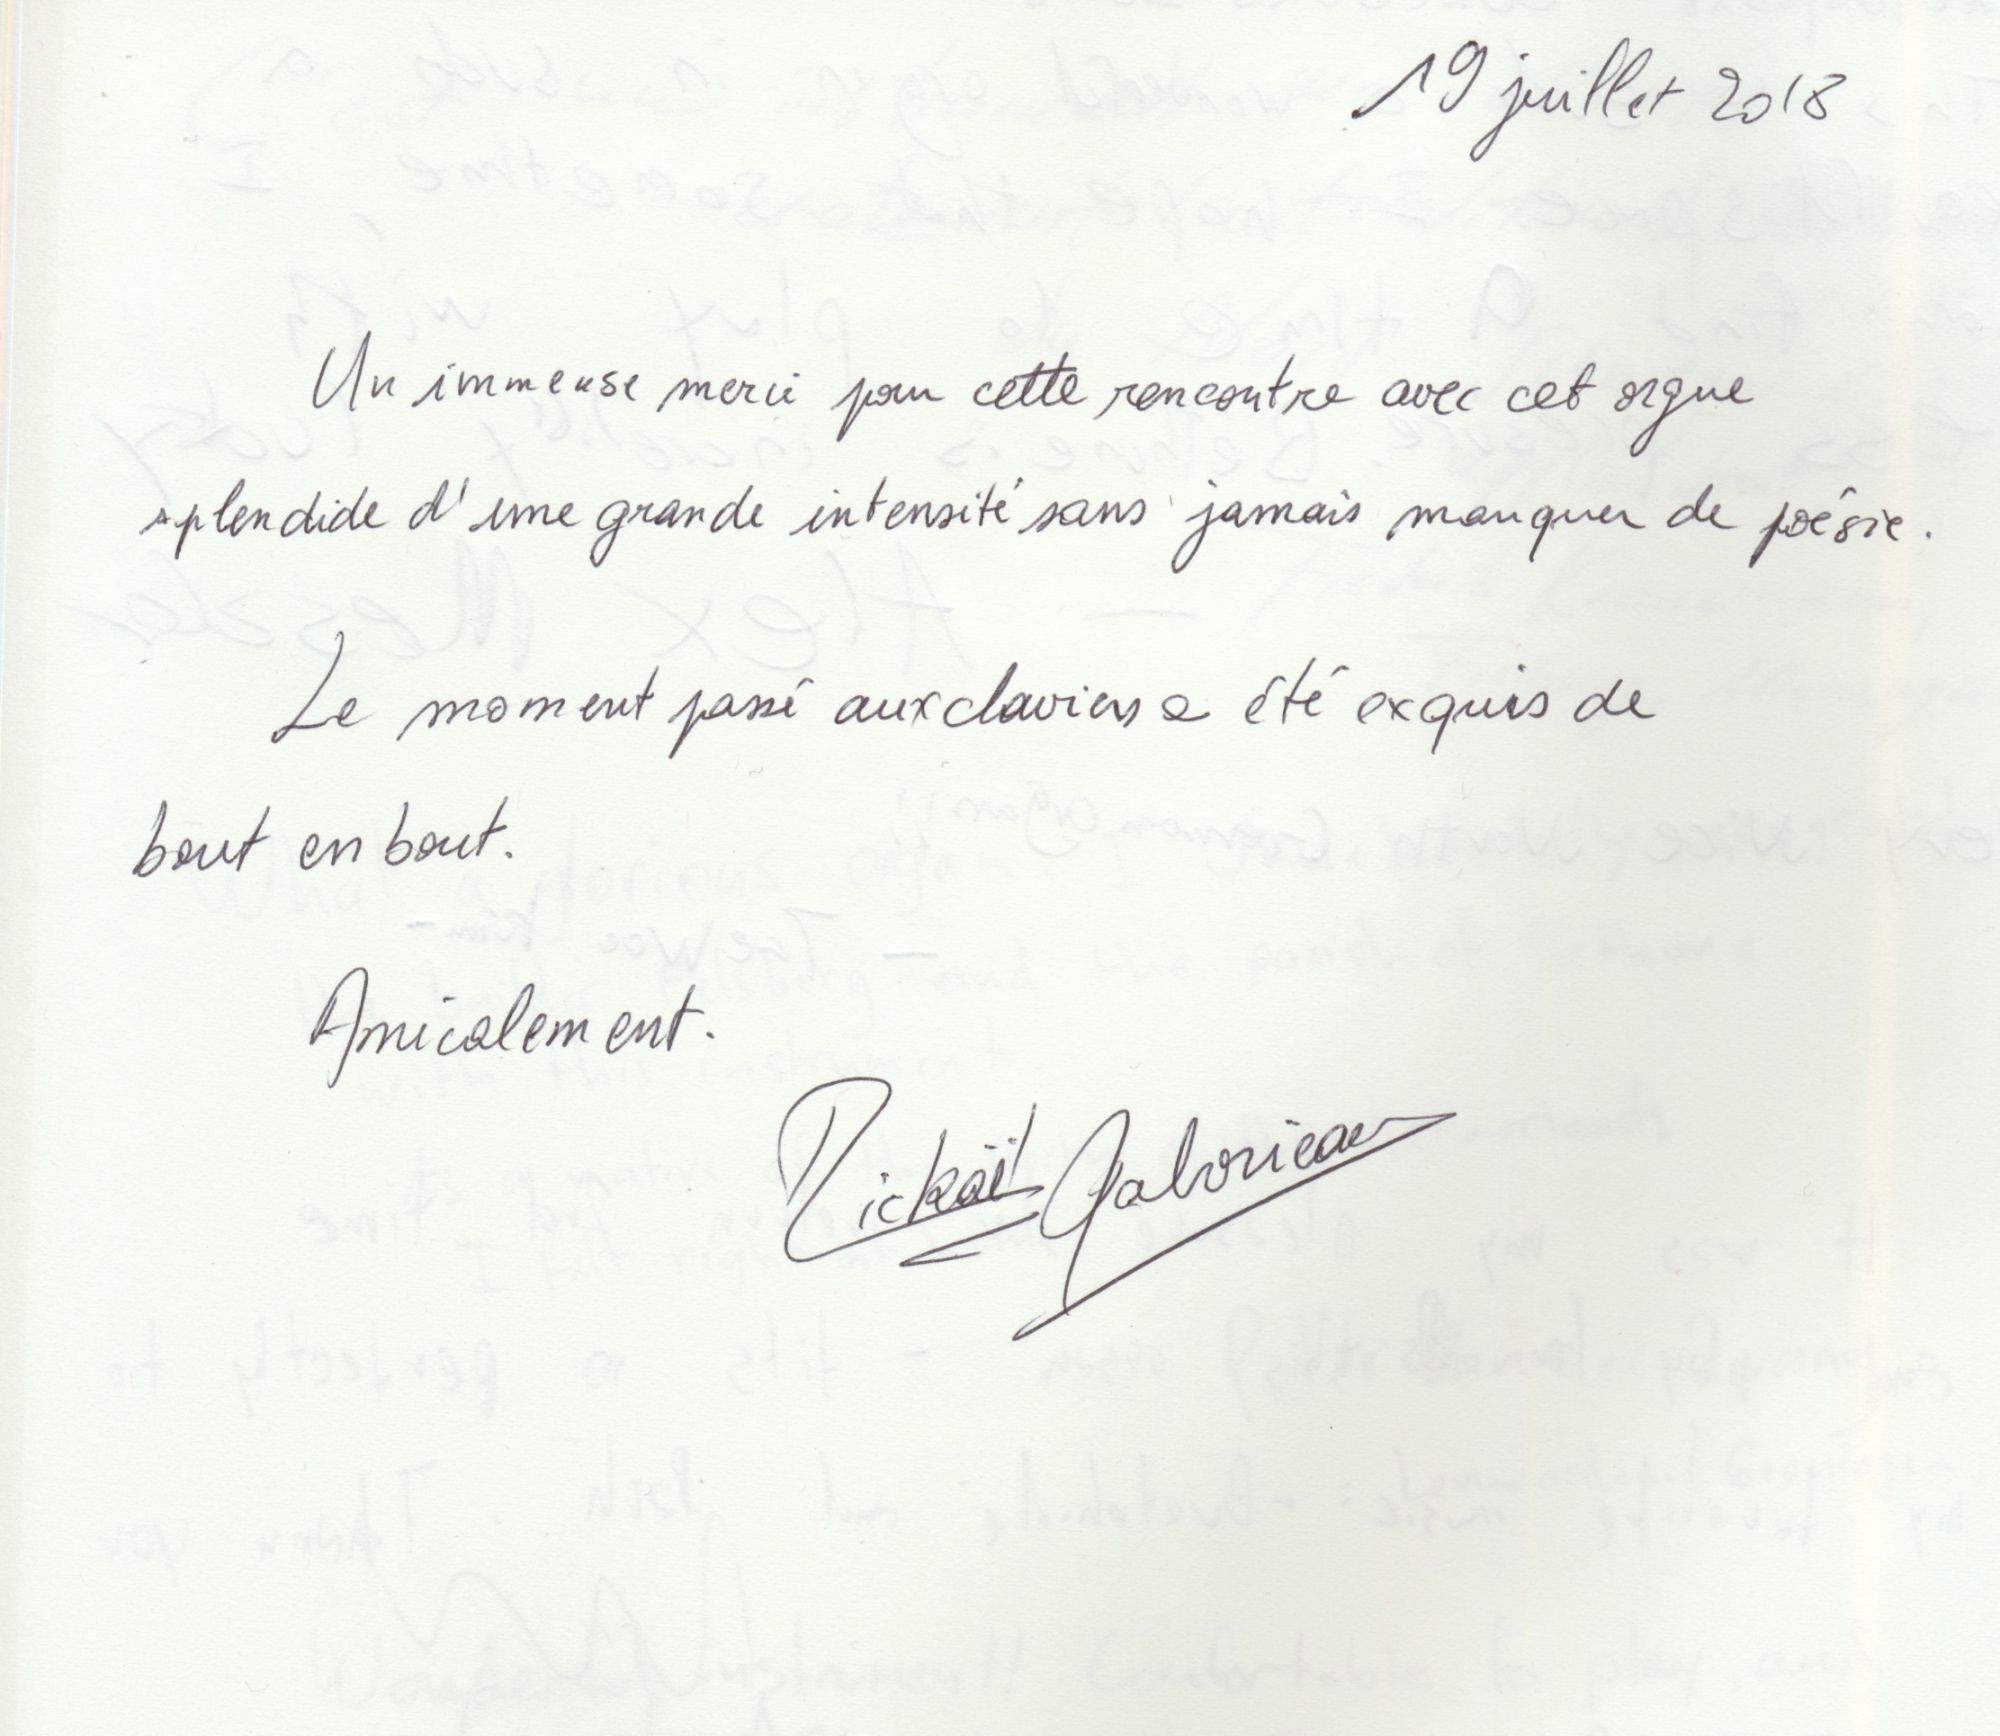 19 juillet 2018
Un immense merci pour cette rencontre avec cet orgue
splendide d'une grande intensité sans jamais manquer de poésie.
Le moment passé aux claviers a été exquis de
bout en bout.
Amicalement.
Mickaël Gaborieau